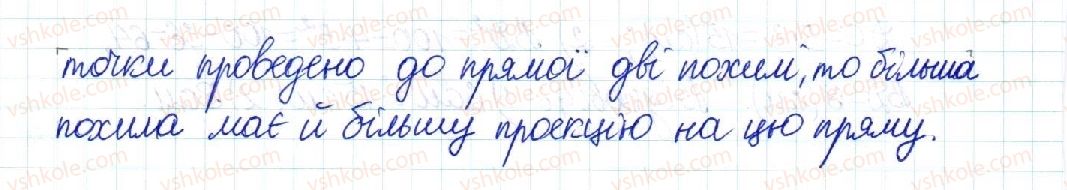 точки проведено до прямої дві похилі, то більша
похила має й більшу проєкцію на цю пряму.